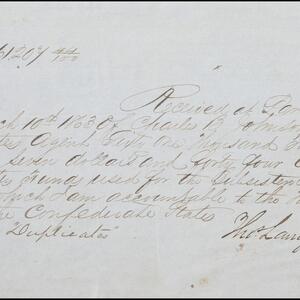 1207 44/100
Received at
ch 10th 1863 of Charles
Agent Fifty One Thousand
Seven dollars and forty four
Funds used for the Subsisten
which I am accountable to the
Confederate States
"Duplicates"
Thos